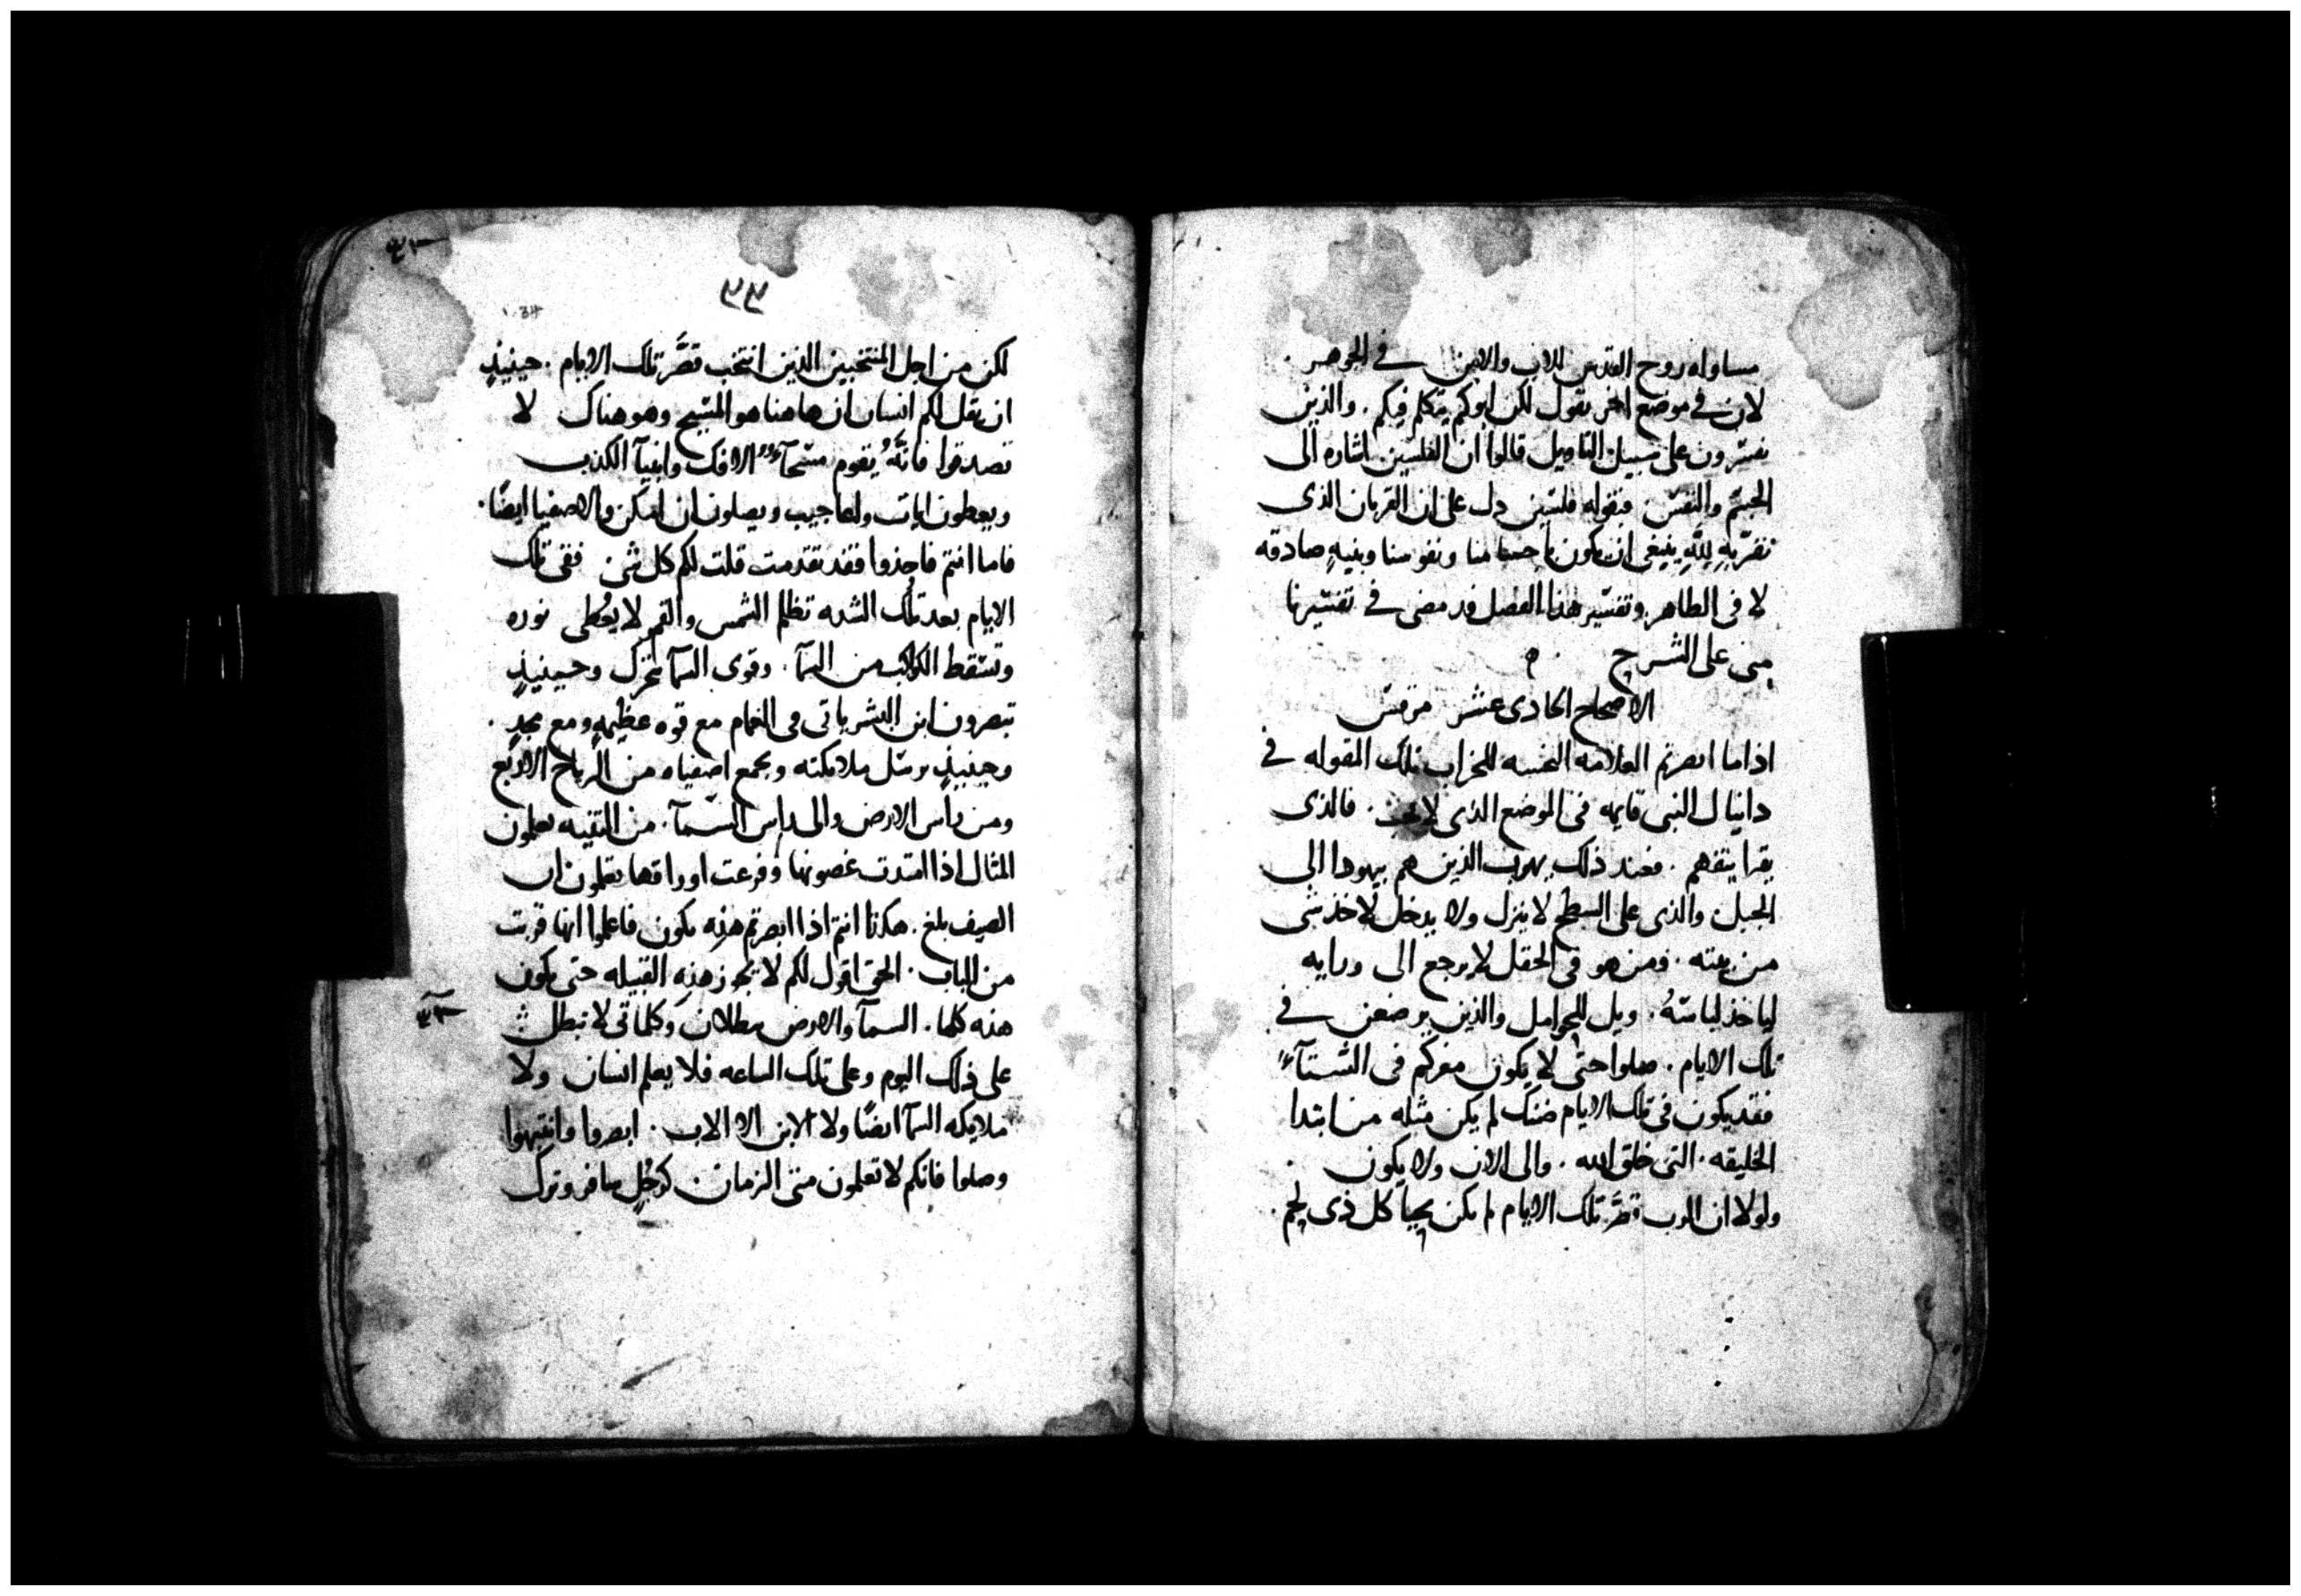 مساواه روح القدس للاب والابن في الجوهر .
لان في موضع اخر يقول لكن ابوكم يتكلم فيكم . والذين
يفسّرون على سبيل التاويل قالوا ان الفلسين اشاره الى
الجسم والنفس فبقوله فلسين دل على ان القربان الذى
نقرّبهِ للهِ ينبغي ان يكون باجسامنا ونفوسنا وبنيهٍ صادقه
لا فى الظاهر وتفسير هذا الفصل قد مضى في تفسيرنا
متى على الشرح ه
الاصحاح الحادى عشر مرقس
اذا ما ابصرتم العلامه النجسه للخراب تلك المقوله في
دانيال النبى قايمه فى الموضع الذى لا يجب . فالذى
يقرا يتفهم . فعند ذلك يهرب الذين هم بيهودا الى
الجبل والذى على السطح لا ينزل ولا يدخل لاخذ شى
من بيته . ومن هو فى الحقل لا يرجع الى ورايه
لياخذ لباسهُ . ويل للحوامل والذين يرضعن في
تلك الايام . صلوا حتى لا يكون مفركم فى الشتآءِ
فقد يكون فى تلك الايام ضنك لم يكن مثله من ابتدا
الخليقه . التى خلق الله . والى الان ولا يكون .
ولولا ان الرب قصَّر تلك الايام لم يكن يحيا كل ذى لحم .
٣٤
لكن من اجل المنتخبين الذين انتخب قصَّر تلك الايام . حينيذٍ
ان يقل لكم انسان ان هاهنا هو المسيح وهو هناك لا
تصدقوا فانَّهُ يقوم مسّحآء الافك وانبيآ الكذب
ويعطون ايات واعاجيب ويضلون ان امكن والاصفيا ايضًا .
فاما انتم فاحذروا فقد تقدمت قلت لكم كل شى ففى تلك
الايام بعد تلك الشده تظلم الشمس والقمر لا يعُطى نوره
وتسّقط الكواكب من السمآ . وقوى السمآ تتحرك وحينيذٍ
تبصرون ابن البشر ياتى فى الغمام مع قوه عظيمهٍ ومع مجدٍ .
وحينيذٍ يرسّل ملايكته ويجمع اصفياه من الرياح الاربع
ومن راس الارض والى راس السمآ . من التينه تعلمون
المثال اذا امتدت غصونها وفرعت اوراقها تعلمون ان
الصيف بلغ . هكذا انتم اذا ابصرتم هذِه تكون فاعلموا انها قربت
من الباب . الحق اقول لكم لا تجوز هذِه القبيله حتى يكون
هذه كلها . السمآ والارض يبطلان وكلماتى لا تبطل
على ذلك اليوم وعلى تلك الساعه فلا يعلم انسان ولا
ملايكه السمآ ايضًا ولا الابن الا الاب . ابصروا وانتبهوا
وصلوا فانكم لا تعلمون متى الزمان . كرجُلٍ سافر وترك